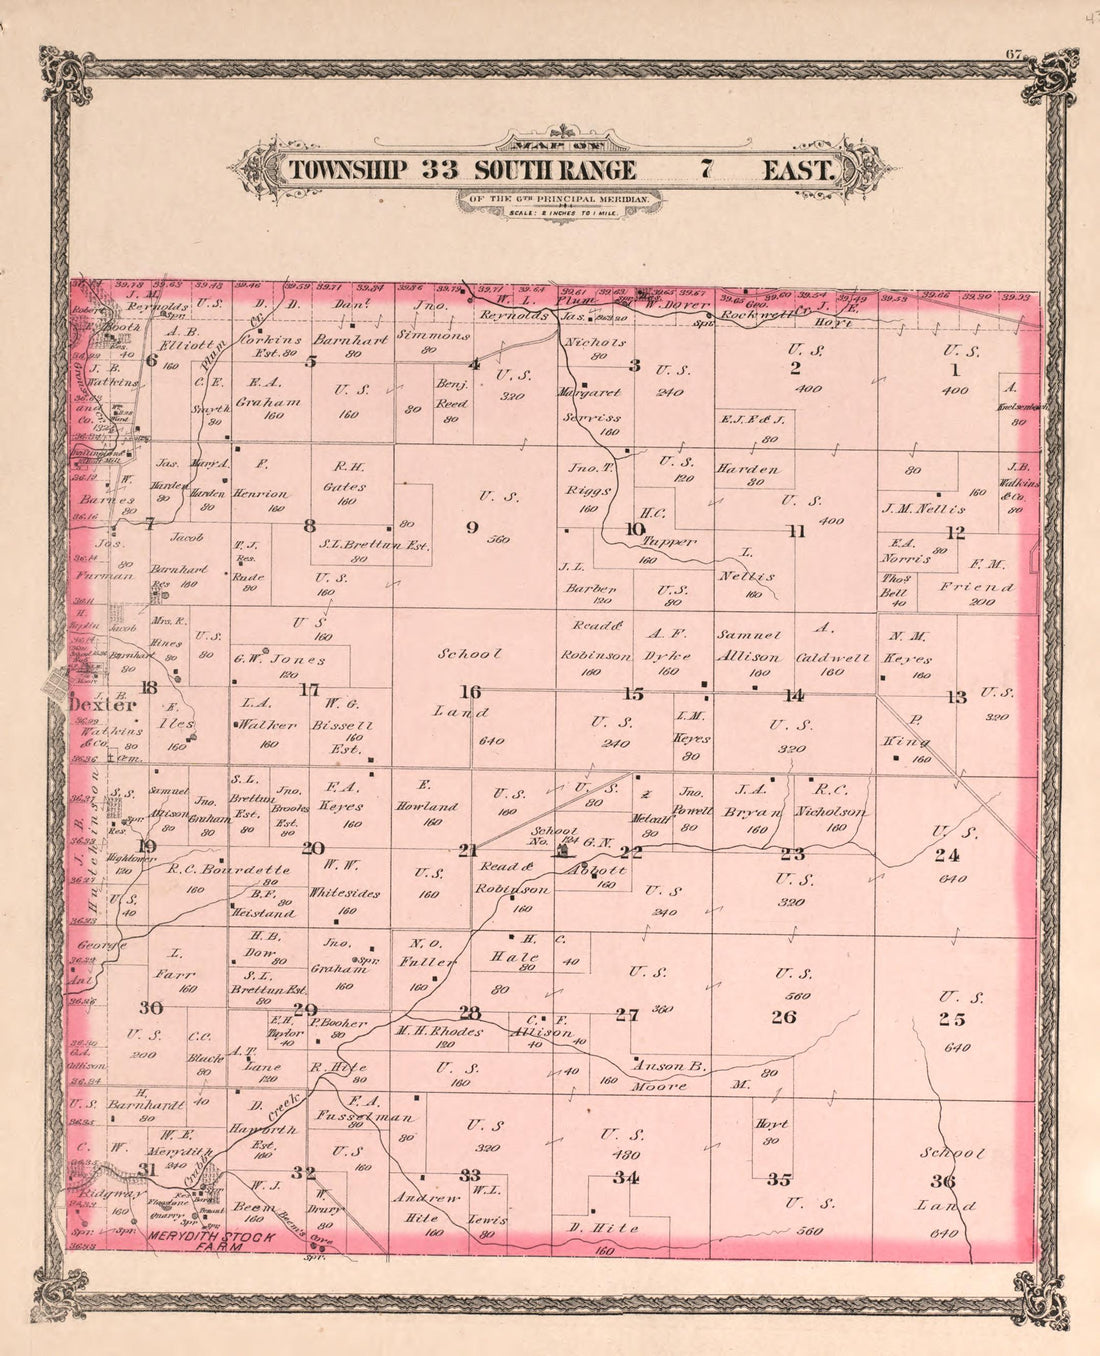 67
MAP OF
TOWNSHIP 33 SOUTH RANGE 7 EAST.
OF THE 6TH PRINCIPAL MERIDIAN.
SCALE: 2 INCHES TO 1 MILE.
J. M. Reynolds
Spr.
U. S.
D. D. Corkins Est. 80
Danl. Barnhart 80
Jno. Simmons 80
W. L. Reynolds
Plum
Jas. Nichols 80
W. Dover
Spr.
Geo. Rockwell
Cr. J. E. Hoyt
Booth
40
A. B. Elliott
160
6
Plum Cr.
5
4
3
2
1
U. S. 400
U. S. 400
J. B. Watkins and Co.
C. E. Smyth 80
E. A. Graham 160
U. S. 160
80
Benj. Reed 80
U. S. 320
Margaret Serviss 160
U. S. 240
E. J. E & J. 80
A. 80
W. Barnes 80
Jas. Harden 80
Mary A. Harden 80
F. Henrion 160
R. H. Gates 160
U. S.
Jno. T. Riggs 160
U. S. 120
Harden 80
80
160
J. B. Watkins & Co. 80
J. M. Nellis
7
8
80
9
560
H. C. Tapper 160
10
U. S. 400
11
12
Jos. Furman
80
Jacob Barnhart
Res 160
T. J. Rude
Res. 80
S. L. Brettun Est. 80
U. S. 160
J. L. Barber 120
U. S. 80
L. Nellis 160
E. A. Norris 80
Thos Bell 40
F. M. Friend 200
Jacob Barnhart 80
Mrs. R. Hines 80
U. S. 80
U S 160
G. W. Jones 120
School Land 640
Read & Robinson 160
A. F. Dyke 160
Samuel Allison 160
A. Caldwell 160
N. M. Keyes 160
18
17
16
15
14
13
Dexter
J. B. Watkins & Co. 80
E. Iles 160
L. A. Walker 160
W. G. Bissell Est. 160
U. S. 240
I. M. Keyes 80
U. S. 320
P. King 160
U. S. 320
Cem.
S. S.
Spr.
Res.
J. B. Hutchinson
Samuel Allison 80
Jno. Graham 80
S. L. Brettun Est. 80
Jno. Brooks Est. 80
F. A. Keyes 160
E. Howland 160
U. S. 160
U. S. 80
Metcalf 80
Jno. Powell 80
J. A. Bryan 160
R. C. Nicholson 160
U. S. 640
School No. 124
G. N. Abbott 160
19
20
21
22
23
24
Hightower 120
R. C. Bourdette 160
80
B. F. Heistand 80
W. W. Whitesides 160
U. S. 160
Read & Robinson 160
U S 240
U. S. 320
U. S. 40
George
L. Farr 160
H. B. Dow 80
S. L. Brettun Est. 80
Jno. Graham 160
Spr.
N. O. Fuller 160
H. C. Hale 80
40
80
U. S. 360
U. S. 560
U. S. 640
30
29
28
27
26
25
U. S. 200
C. C. Black 80
E. H. Taylor 40
P. Booher 80
M. H. Rhodes 120
C. F. Allison
40
40
A. T. Lane 120
R. Hite 80
U. S. 160
40
160
Anson B. Moore
M.
80
U. S.
H. Barnhardt 80
40
D. Haworth Est. 160
F. A. Fusselman 80
80
U S 320
U. S. 480
Hoyt 80
School Land 640
C. W. Ridgway 160
W. E. Merydith 240
Crabb Creek
U. S 160
31
32
33
34
35
36
Quarry
Spr
Spr.
Spr.
W. J. Beem 160
W. Drury 80
Beem's Cave
Spr.
Andrew Hite 160
W. L. Lewis 80
D. Hite 160
U. S. 560
MERYDITH STOCK FARM